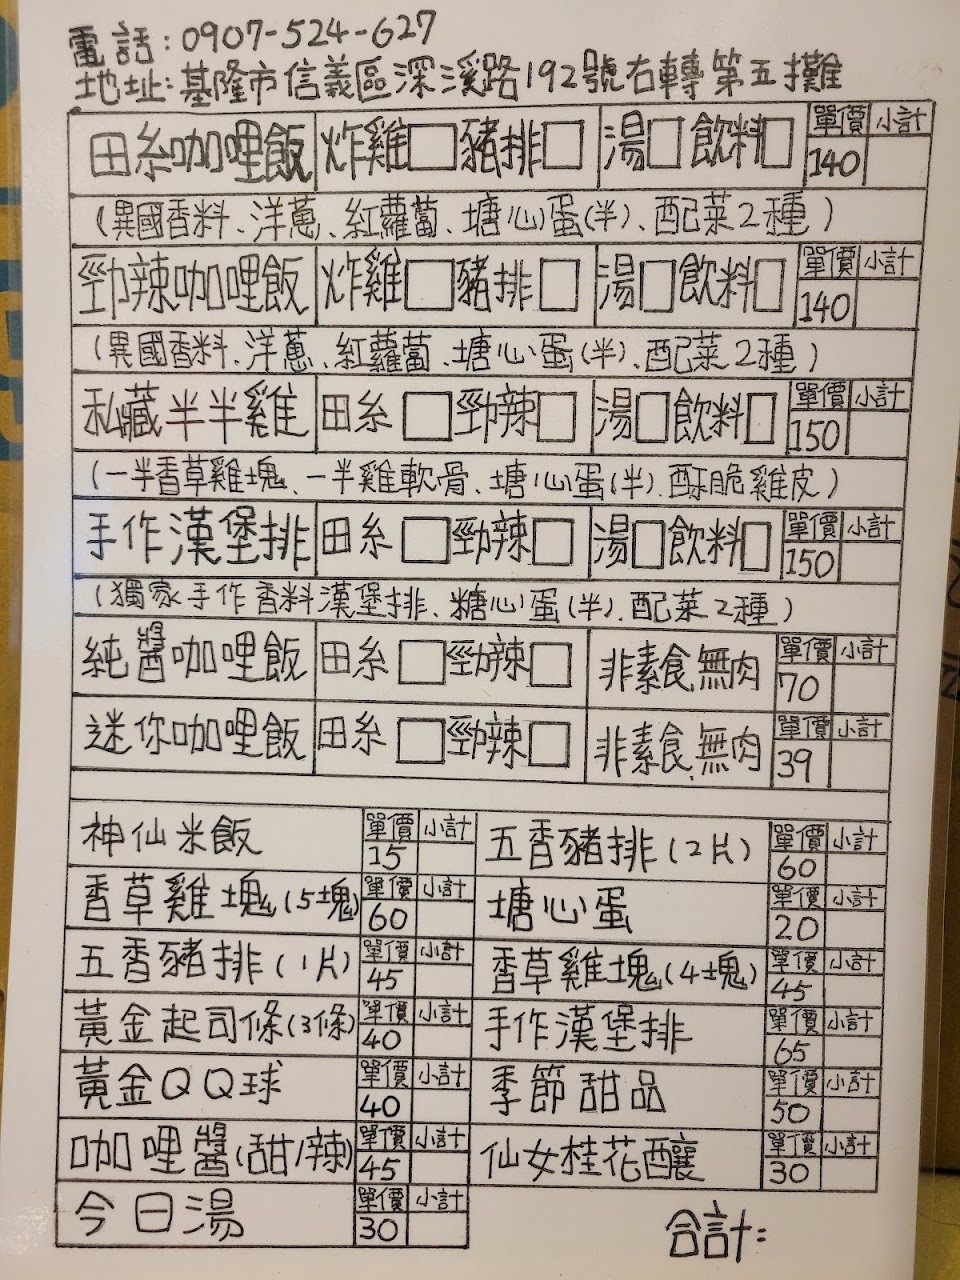 電話:0907-524-627
地址:基隆市信義區深溪路192號右轉第五攤
田糸咖哩飯 炸雞□豬排□ 湯□飲料□ 單價 小計 140
(異國香料、洋蔥、紅蘿蔔、塘心蛋(半)、配菜2種)
勁辣咖哩飯 炸雞□豬排□ 湯□飲料□ 單價 小計 140
(異國香料、洋蔥、紅蘿蔔、塘心蛋(半)、配菜2種)
私藏半半雞 田糸□勁辣□ 湯□飲料□ 單價 小計 150
(一半香草雞塊、一半雞軟骨、塘心蛋(半)、酥脆雞皮)
手作漢堡排 田糸□勁辣□ 湯□飲料□ 單價 小計 150
(獨家手作香料漢堡排、糖心蛋(半)、配菜2種)
純醬咖哩飯 田糸□勁辣□ 非素食,無肉 單價 小計 70
迷你咖哩飯 田糸□勁辣□ 非素食,無肉 單價 小計 39
神仙米飯 單價 小計 15 五香豬排(2片) 單價 小計 60
香草雞塊(5塊) 單價 小計 60 塘心蛋 單價 小計 20
五香豬排(1片) 單價 小計 45 香草雞塊(4塊) 單價 小計 45
黃金起司條(3條) 單價 小計 40 手作漢堡排 單價 小計 65
黃金QQ球 單價 小計 40 季節甜品 單價 小計 50
咖哩醬(甜/辣) 單價 小計 45 仙女桂花釀 單價 小計 30
今日湯 單價 小計 30
合計: